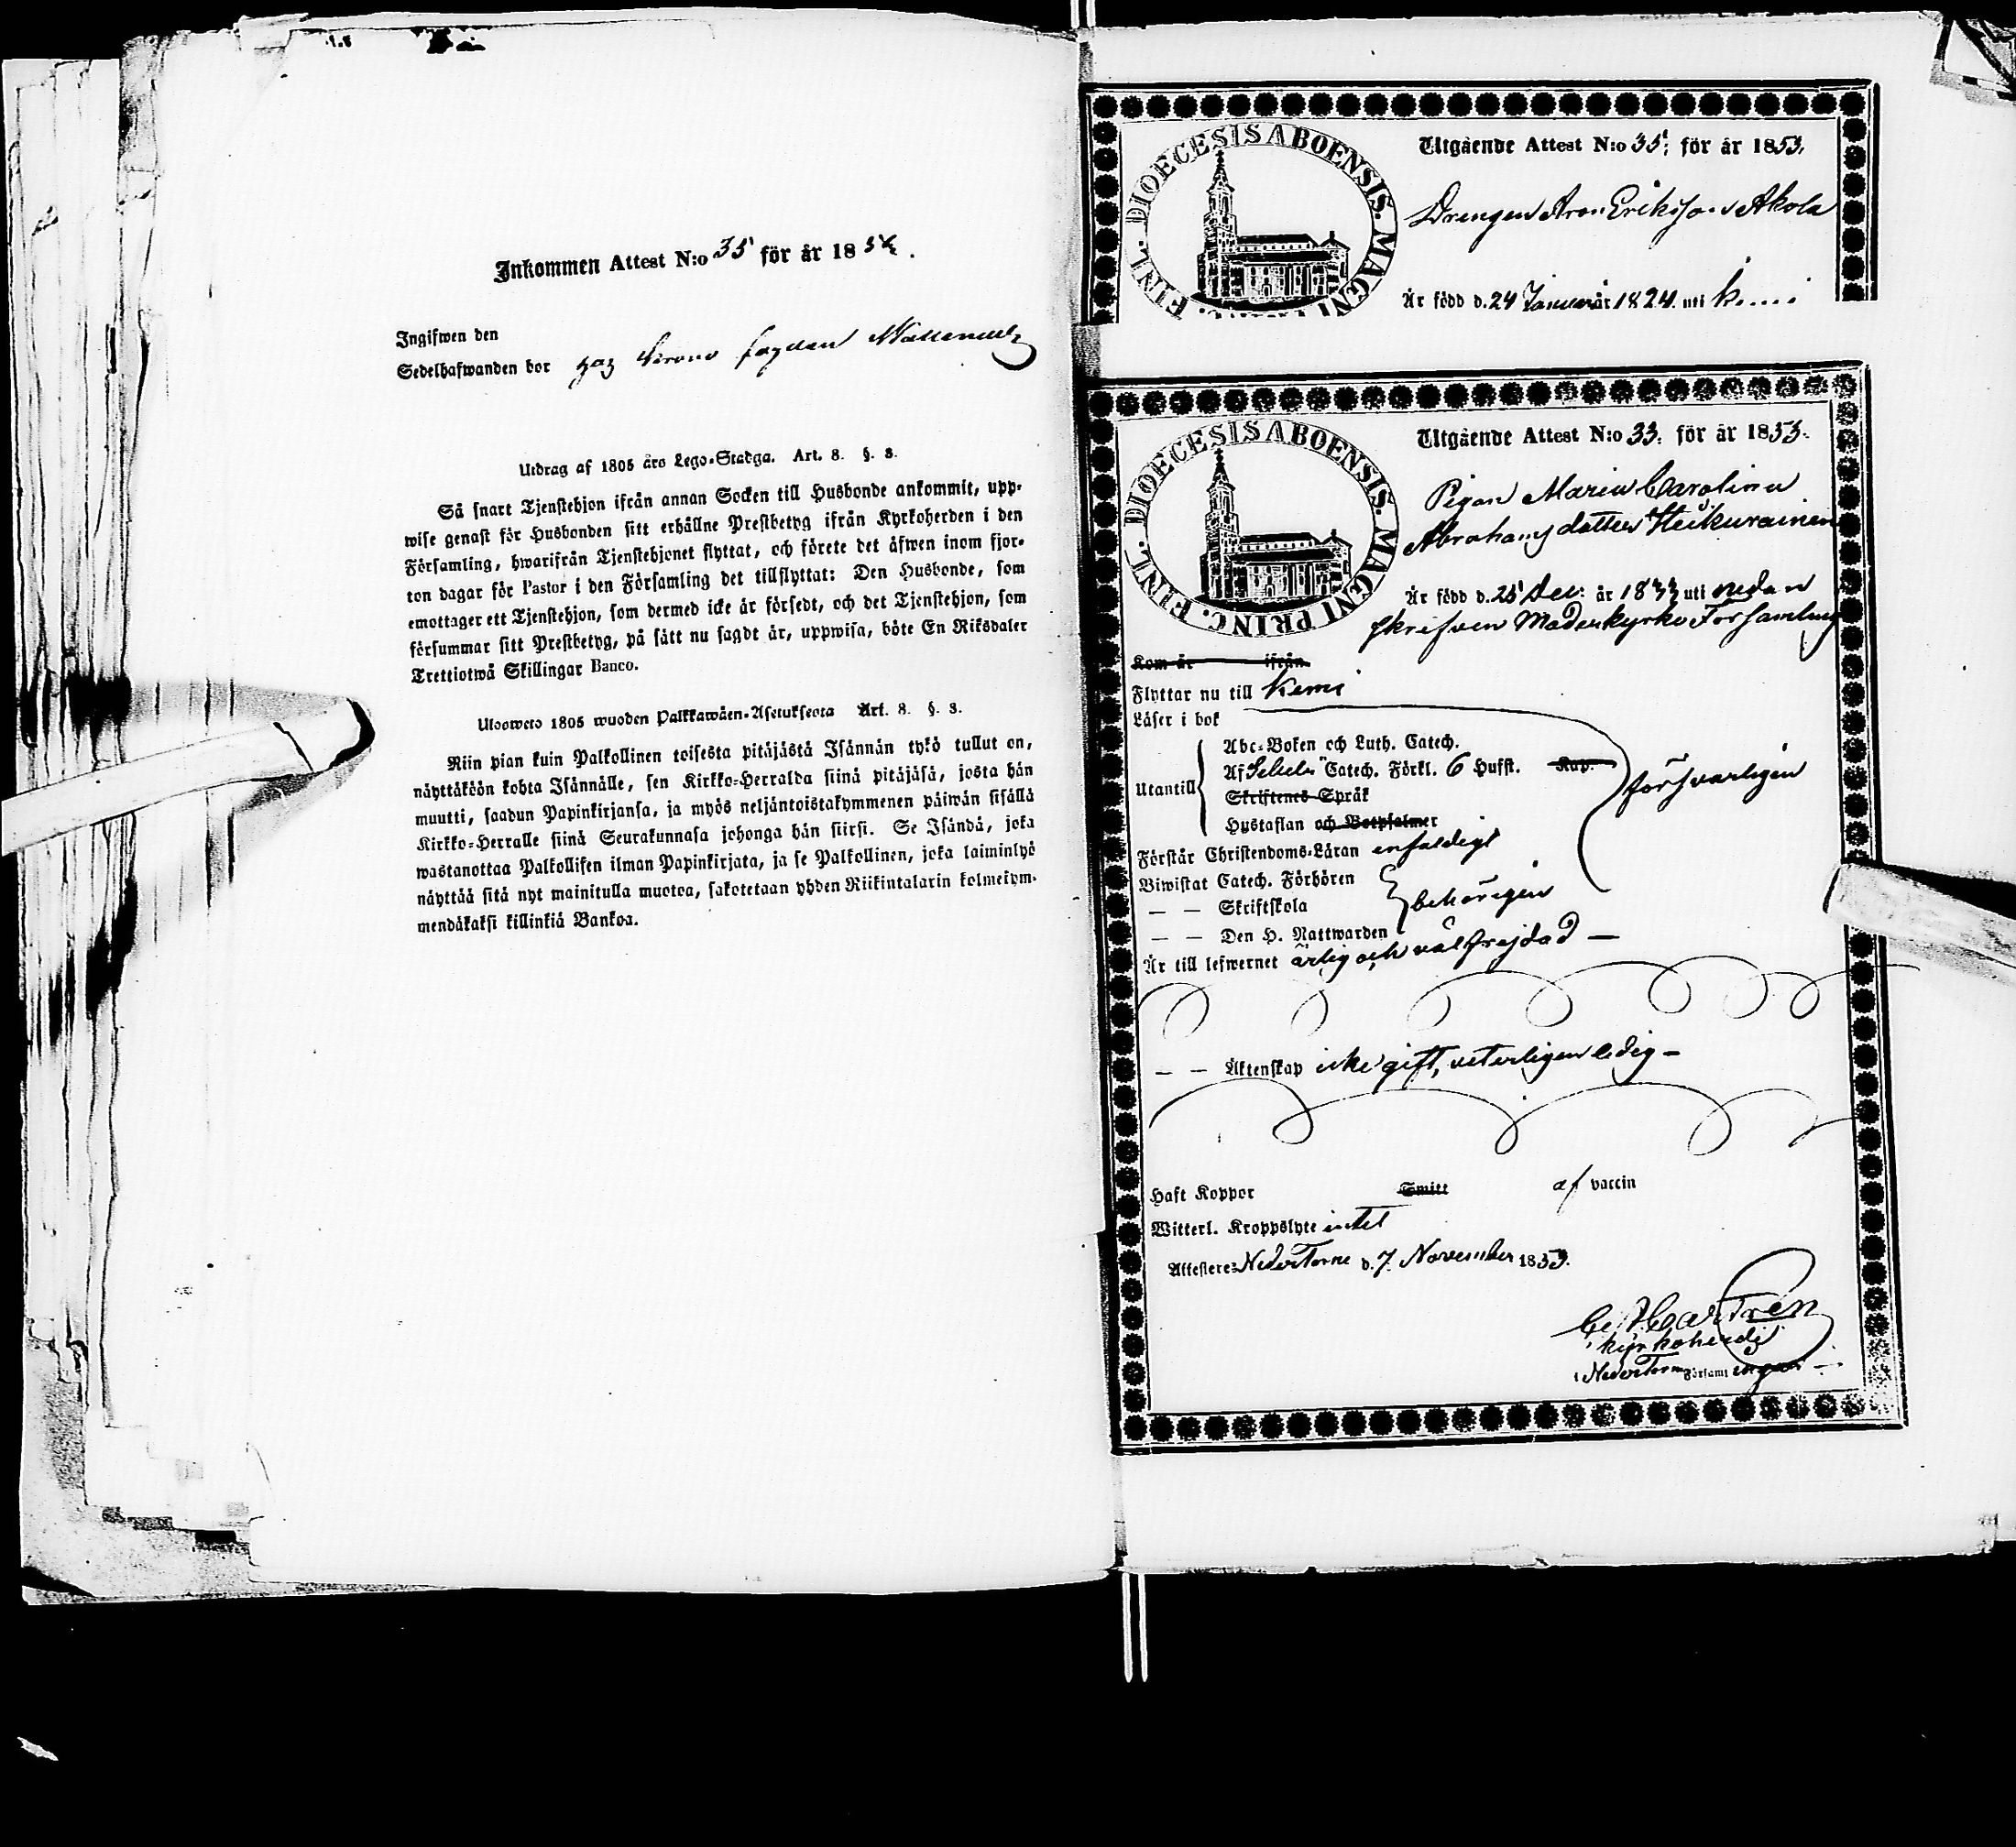 Inkommen Attest N:o 35 för år 1854.
Ingifwen den
Sedelhafwanden bor hos Krono fogden
Utdrag af 1805 års Lego-Stadga. Art. 8. §. 8.
Så snart Tjenstehjon ifrån annan Socken till Husbonde ankommit, upp-
wise genast för Husbonden sitt erhållne Prestbetyg ifrån Kyrkoherden i den
Församling, hwarifrån Tjenstehjonet flyttat, och förete det äfwen inom fjor-
ton dagar för Pastor i den Församling det tillflyttat: Den Husbonde, som
emottager ett Tjenstehjon, som dermed icke är försedt, och det Tjenstehjon, som
försummar sitt Prestbetyg, på sätt nu sagdt är, uppwisa, böte En Riksdaler
Trettiotwå Skillingar Banco.
Ulosweto 1805 wuoden Palkkawäen-Asetuksesta Art. 8. §. 8.
Niin pian kuin Palkollinen toisesta pitäjästä Isännän tykö tullut on,
näyttäköön kohta Isännälle, sen Kirkko-Herralda siinä pitäjäsä, josta hän
muutti, saadun Papinkirjansa, ja myös neljäntoistakymmenen päiwän sisällä
Kirkko-Herralle siinä Seurakunnasa johonga hän siirsi. Se Isändä, joka
wastanottaa Palkollisen ilman Papinkirjata, ja se Palkollinen, joka laiminlyö
näyttää sitä nyt mainitulla muotoa, sakotetaan yhden Riikintalarin kolmekym-
mendäkaksi killinkiä Bankoa.
FINL. DIOECESIS ABOENSIS. MAGNI
Utgående Attest N:o 35. för år 1853.
Drengen Aron Eriksson Akola
Är född d. 24 Januari år 1824. uti Kemi
FINL. DIOECESIS ABOENSIS. MAGNI PRINC.
Utgående Attest N:o 33. för år 1853.
Pigan Maria Carolina
Abrahams dotter Heikurainen
Är född d. 25 Dec: år 1833 uti nedan
skrifven Moderkyrko Församling
Kom år ifrån
Flyttar nu till Kemi
Läser i bok
Utantill
Abc-Boken och Luth. Catech.
Af Catech. Förkl. 6 Hufst. Kap.
Skriftenes Språk
Hustaflan och Botpsalmer
försvarligen
Förstår Christendoms-Läran enfaldigt
Biwistat Catech. Förhören
— — Skriftskola
behörigen
— — Den H. Nattwarden
Är till lefwernet ärlig och välfrejdad —
— — Äktenskap icke gift, veterligen ledig —
Haft Koppor Smitt af vaccin
Witterl. Kroppslyte intet
Attesterez NederTorne d. 7. November 1853.
Castrén
kyrkoherde
i NederTorne Församlingar —